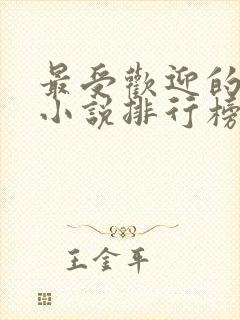 最受歡迎的
小說排行榜
王金平